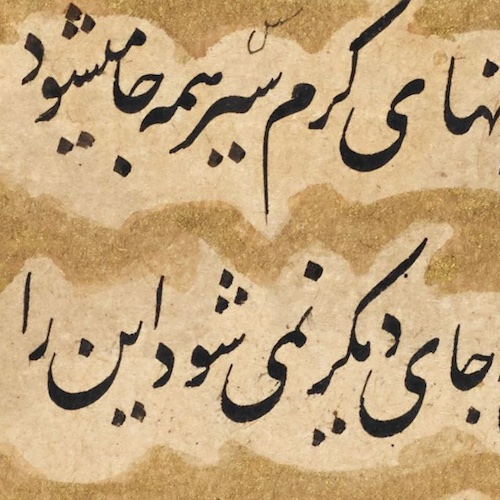 نهای کرم سیر همه جا میشود
جای دیکر نمی شود این را